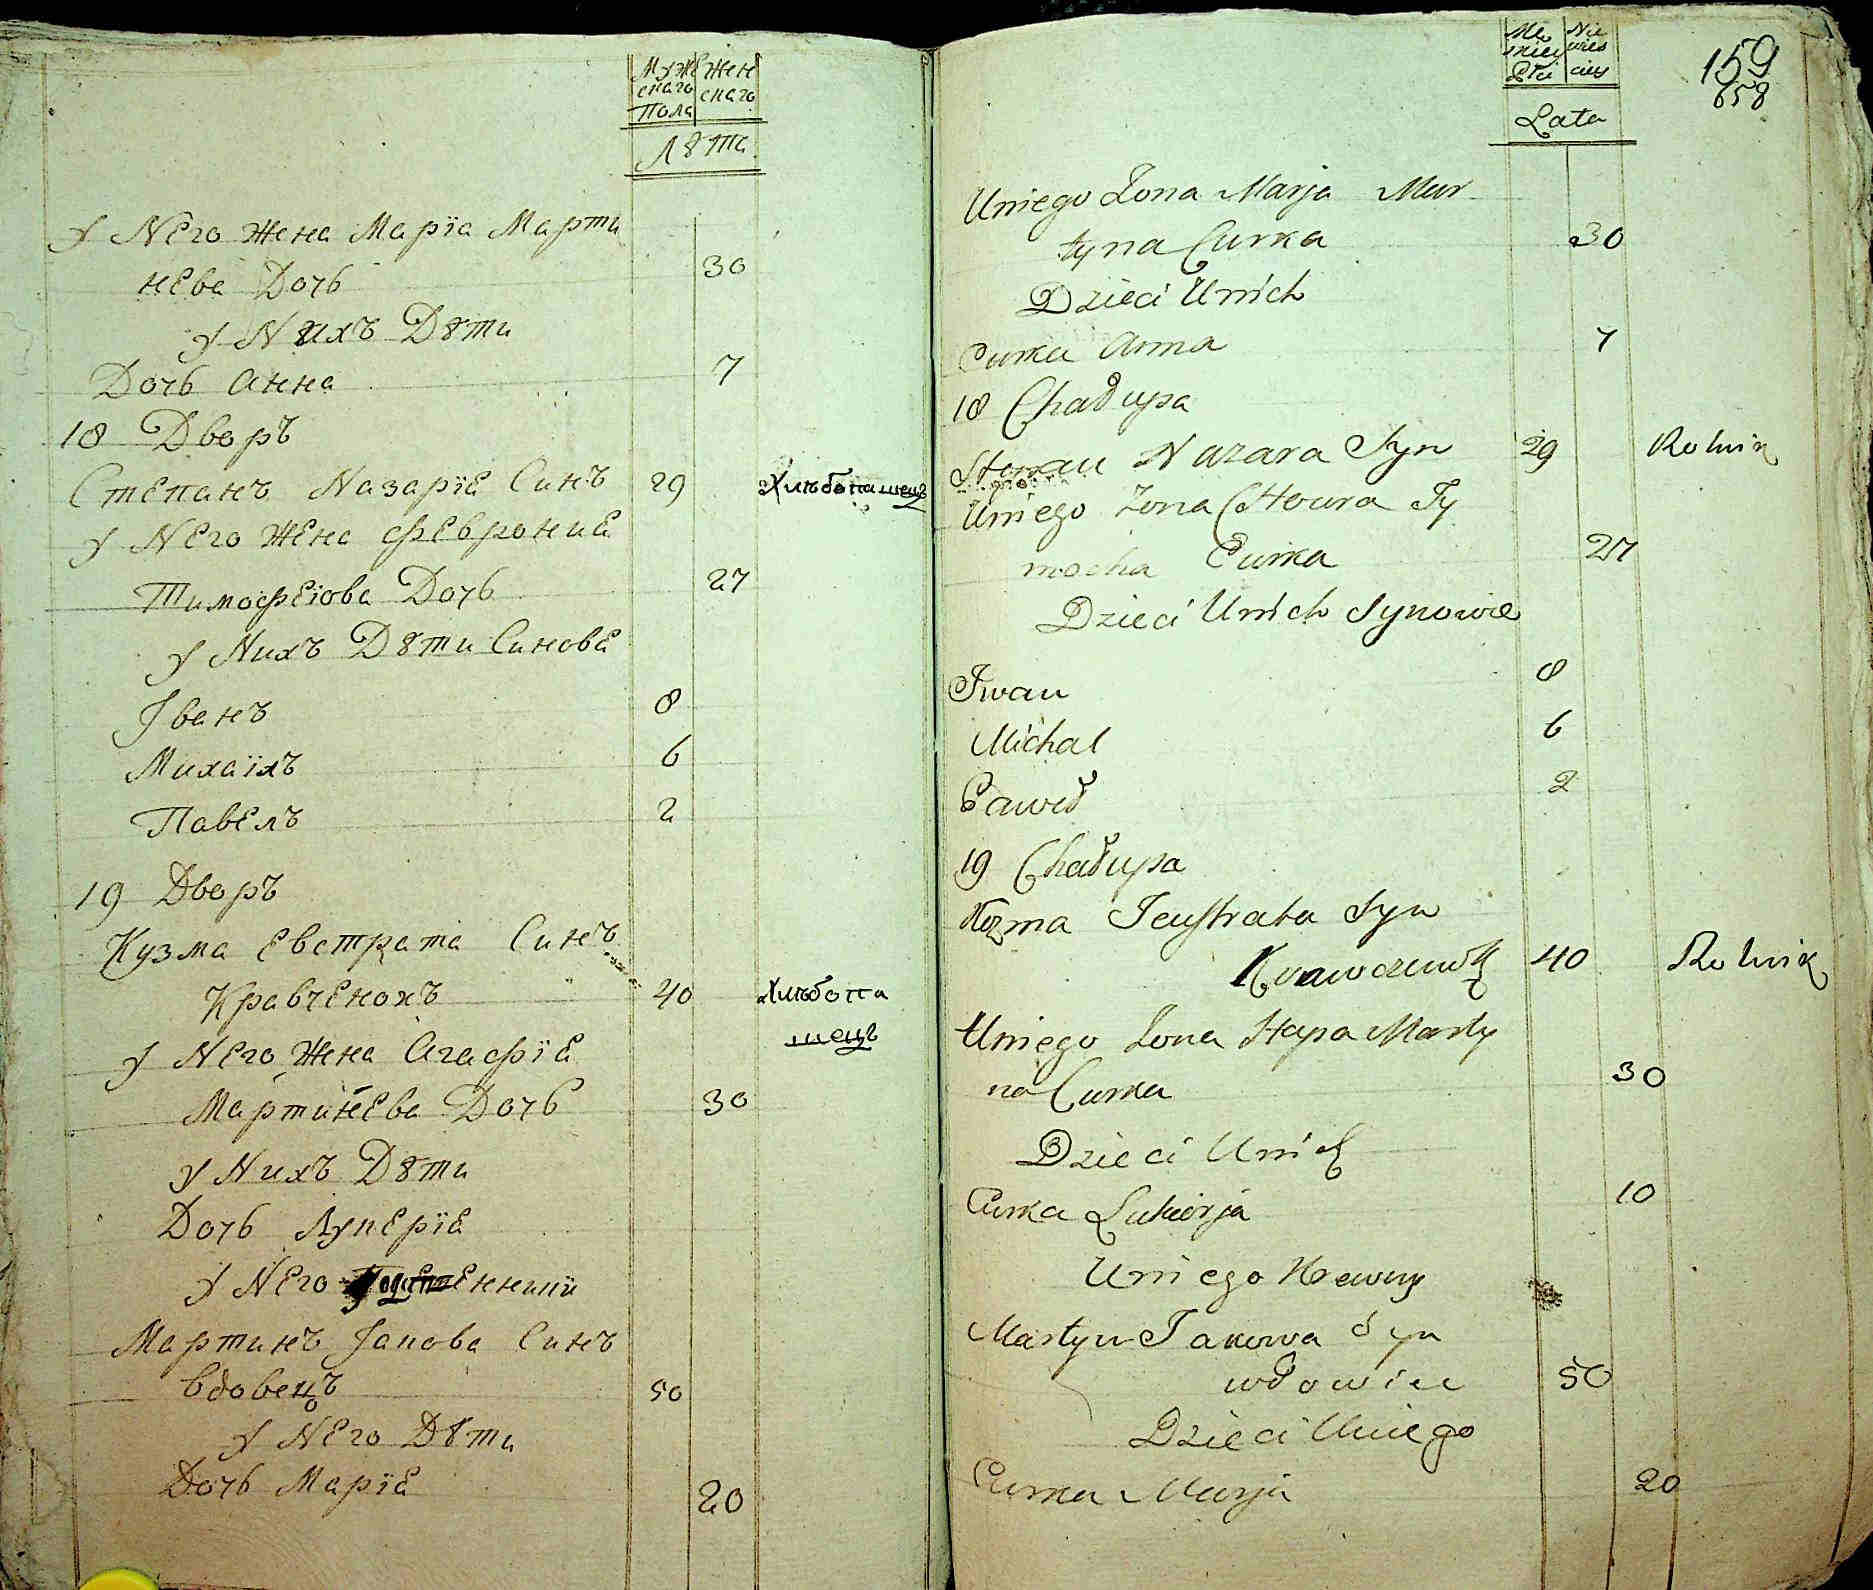 Муже Жен
скаго скаго
пола
Лѣта
У Него жена Маріа Марти
нева Дочь 30
У Нихъ Дѣти
Дочь Анна 7
18 Дворъ
Степанъ Назаріе Синъ 29 Хлѣбопашецъ
У Него Жена Февроние
Тимофеіова Дочь 27
У Нихъ Дѣти Синове
Іванъ 8
Михаілъ 6
Павелъ 2
19 Дворъ
Кузма Евстрата Синъ
Кравченокъ 40 Хлѣбопа
шецъ
У Него Жена Агафіе
Мартинева Дочь 30
У Нихъ Дѣти
Дочь Лукеріе
У Него
Мартинъ Іакова Синъ
вдовецъ 50
У Него Дѣти
Дочь Маріе 20
159
658
Mę Nie
skiey wies
Płci ciey
Lata
Uniego Żona Marja Mar
tyna Curka 30
Dzieci Unich
Curka Anna 7
18 Chałupa
Stepan Nazara Syn 29 Rolnik
Uniego Żona Chowra Ty
mocha Curka 27
Dzieci Unich Synowie
Iwan 8
Michal 6
Paweł 2
19 Chałupa
Kozma Jeustrata Syn
Krawczenok 40 Rolnik
Uniego Żona Hapa Marty
na Curka 30
Dzieci Unich
Curka Lukierja 10
Uniego Krewny
Martyn Jakowa Syn
wdowiec 50
Dzieci Uniego
Curka Marja 20